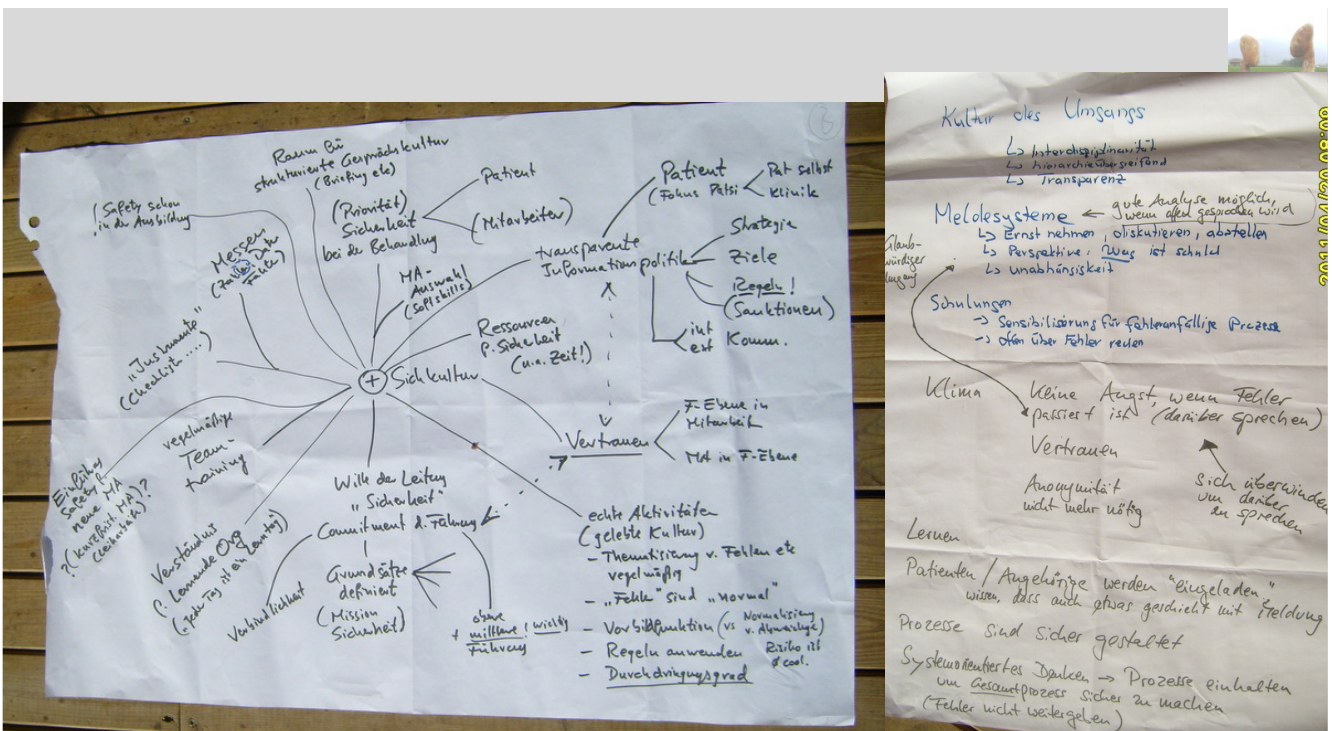 Raum für
strukturierte Gesprächskultur
(Briefing etc)
! Safety schon
in der Ausbildung
(Priorität)
Sicherheit
bei der Behandlung
Patient
(Mitarbeiter)
Messen
Fakten)
MA-
Auswahl
(Softskills)
transparente
Informationspolitik
Patient
(Fokus Patsi
Pat selbst
Klinik
Strategie
Ziele
Regeln!
(Sanktionen)
int
ext
Komm.
Ressourcen
f. Sicherheit
(u.a. Zeit!)
"Instrumente"
(Checklist.....)
+ Sichkultur
Vertrauen
F-Ebene in
Mitarbeit
MA in F-Ebene
regelmäßige
Team-
training
Safety f.
neue MA
Verständnis
f. Lernende Org
(„Jeder Tag ist ein Lerntag)
Wille der Leitung
"Sicherheit"
Commitment d. Führung
Verbindlichkeit
Grundsätze
definiert
(Mission
Sicherheit)
obere
+ mittlere ! wichtig
Führung
echte Aktivitäten
(gelebte Kultur)
- Thematisierung v. Fehlern etc
regelmäßig
- "Fehler" sind "normal"
- Vorbildfunktion (vs Normalisierung
v. Abweichge)
- Regeln anwenden
Risiko ist
ø cool.
- Durchdringungsgrad
6
Kultur des Umgangs
↳ Interdisziplinarität
↳ hierarchieübergreifend
↳ Transparenz
Meldesysteme ← gute Analyse möglich,
wenn offen gesprochen wird
↳ Ernst nehmen, diskutieren, abstellen
↳ Perspektive: Was ist schuld
↳ unabhängigkeit
Glaub-
würdiger
Umgang
Schulungen
→ Sensibilisierung für fehleranfällige Prozesse
→ offen über Fehler reden
Klima
Keine Angst, wenn Fehler
passiert ist (darüber sprechen)
Vertrauen
Anonymität
nicht mehr nötig
Sich überwinden
um darüber
zu sprechen
Lernen
Patienten / Angehörige werden "eingeladen"
wissen, dass auch etwas geschieht mit Meldung
Prozesse sind sicher gestaltet
Systemorientiertes Denken → Prozesse einhalten
um Gesamtprozess sicher zu machen
(Fehler nicht weitergeben)
2011/04/20 08:09